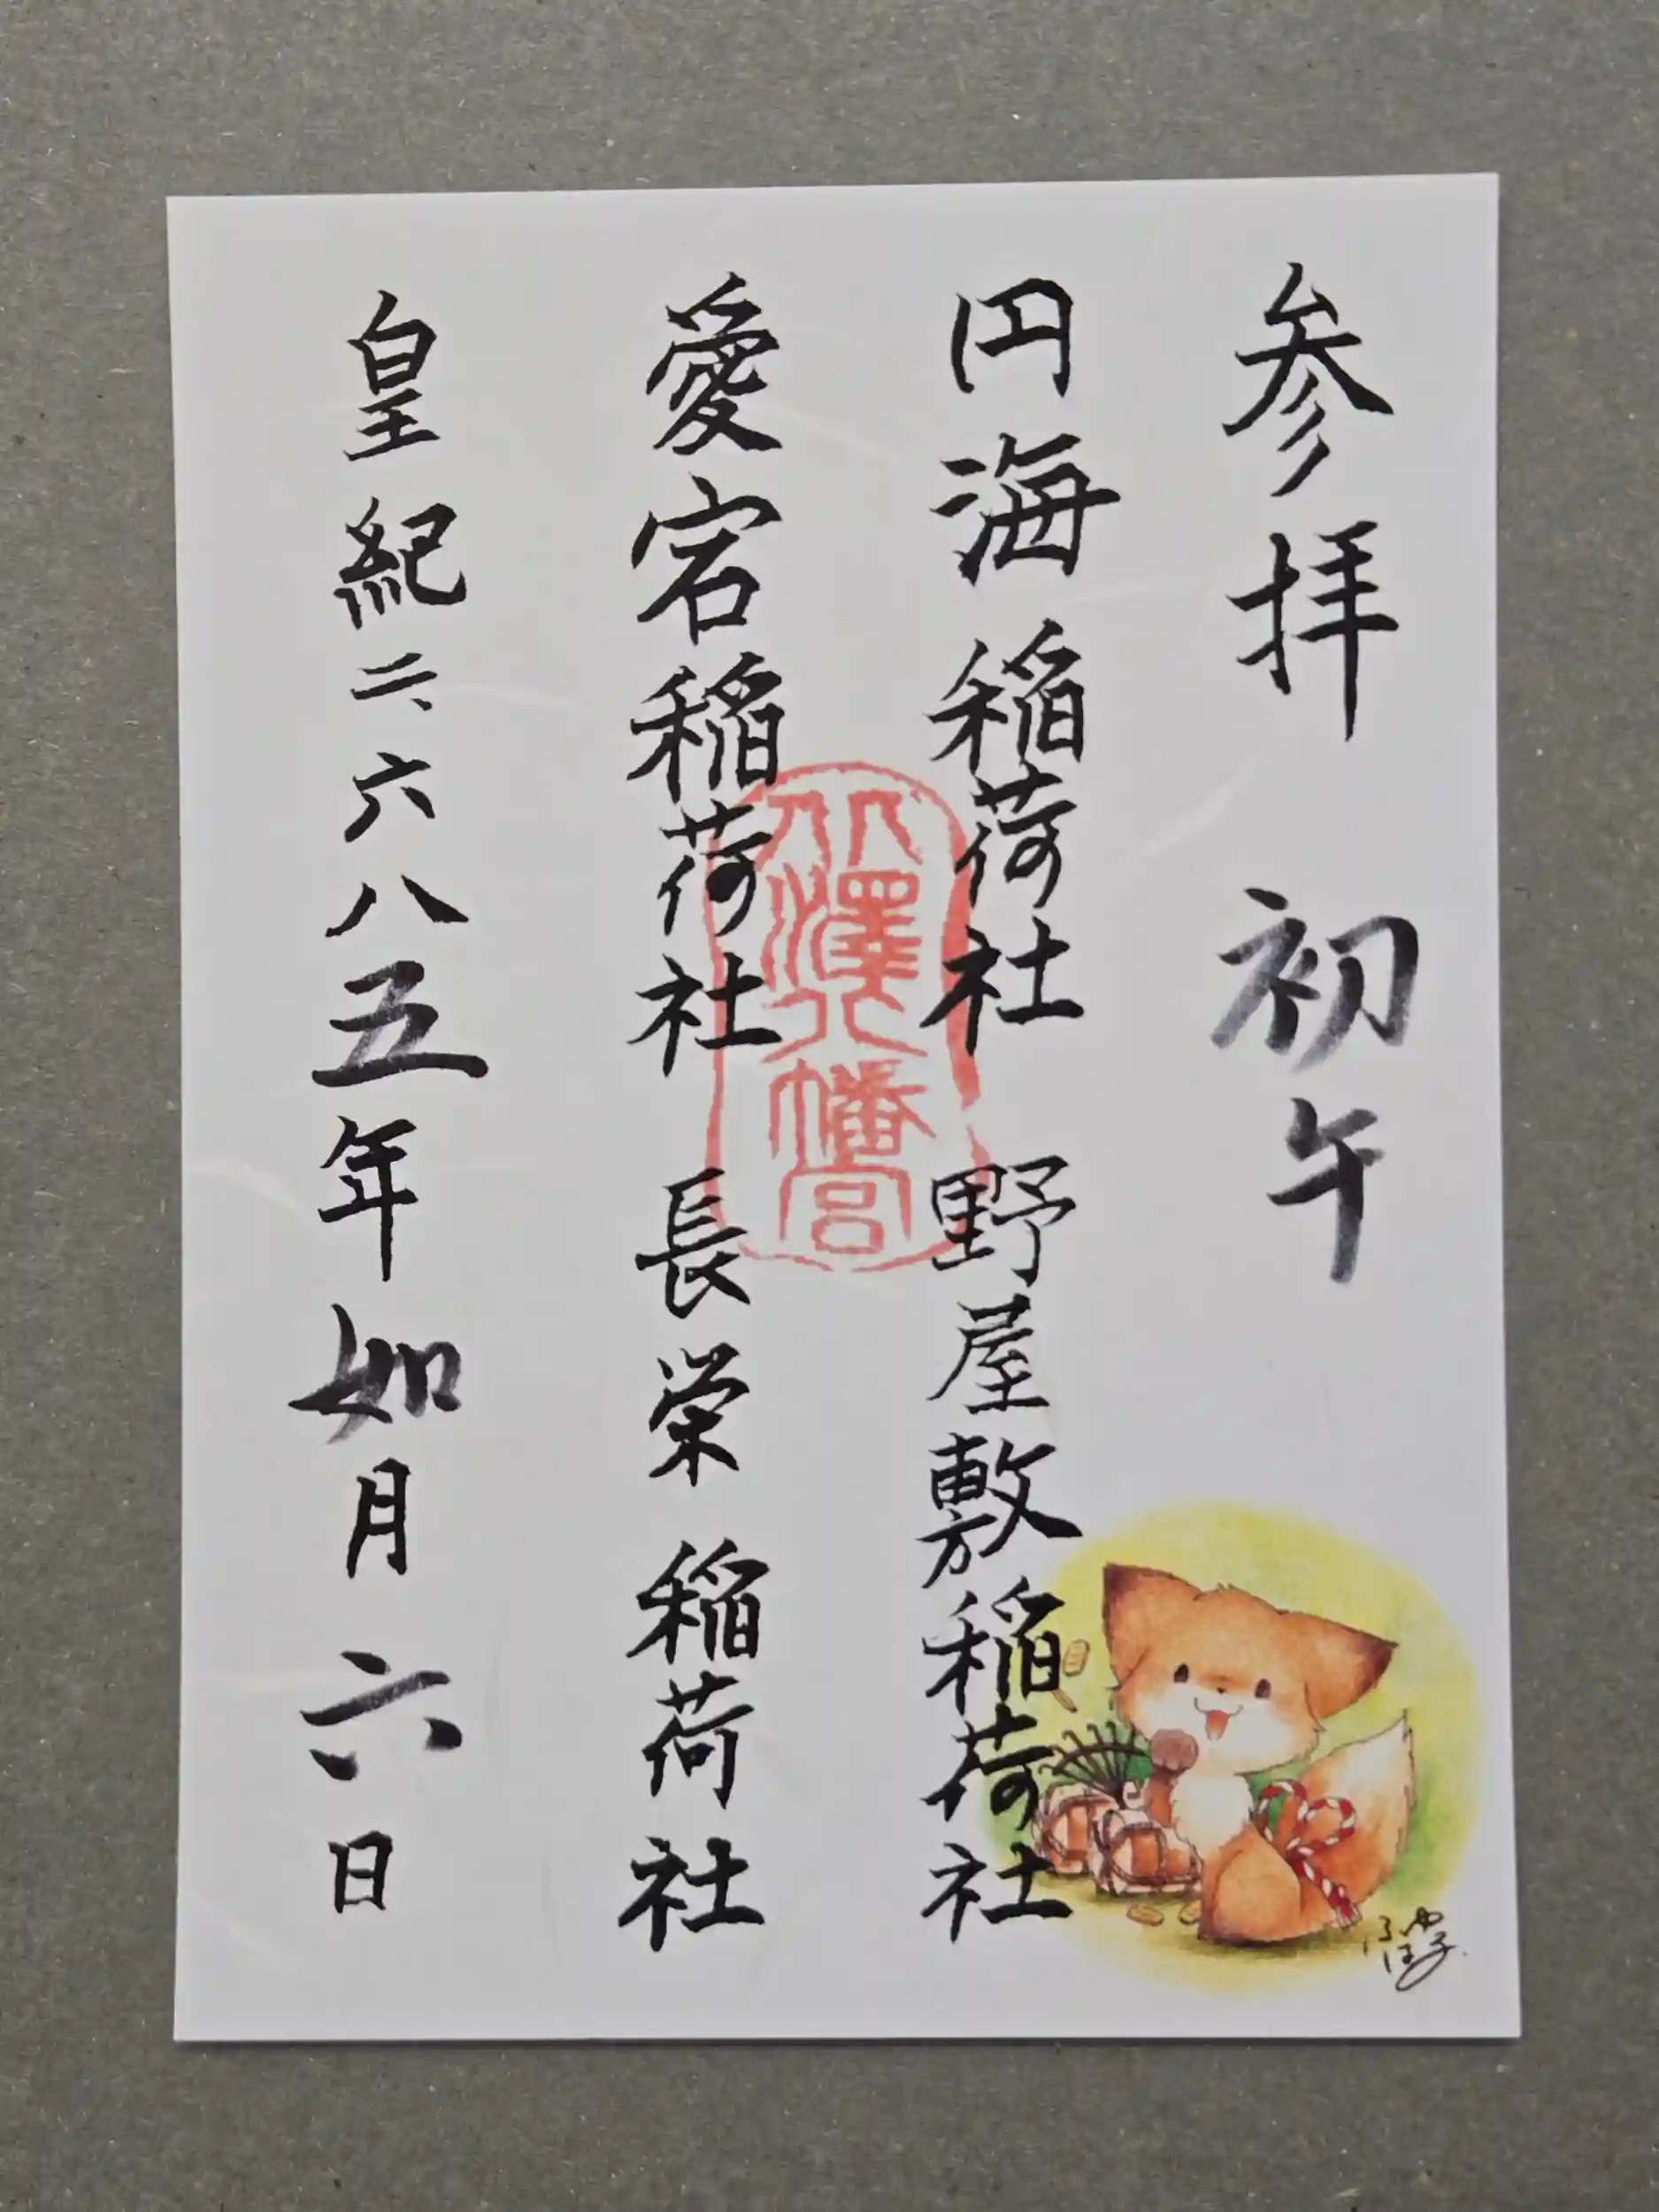 参拝 初午
円海稲荷社 野屋敷稲荷社
愛宕稲荷社 長栄稲荷社
皇紀二六八五年如月六日
八幡宮